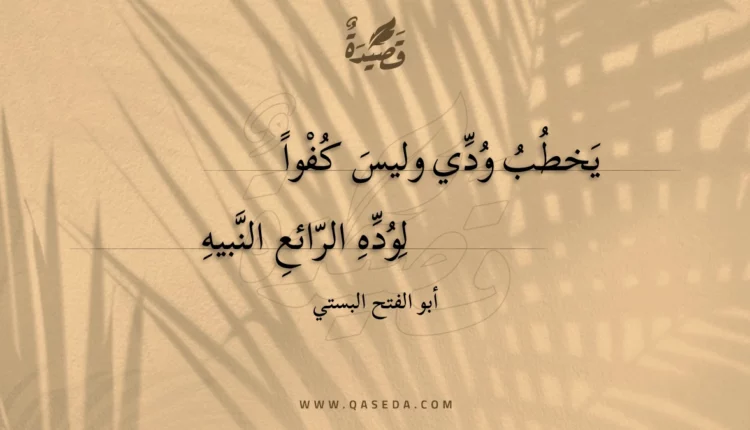 قَصِيدَةٌ
يَخطُبُ وُدِّي وليسَ كُفْواً
لِوُدِّهِ الرّائعِ النَّبيهِ
أبو الفتح البستي
WWW.QASEDA.COM